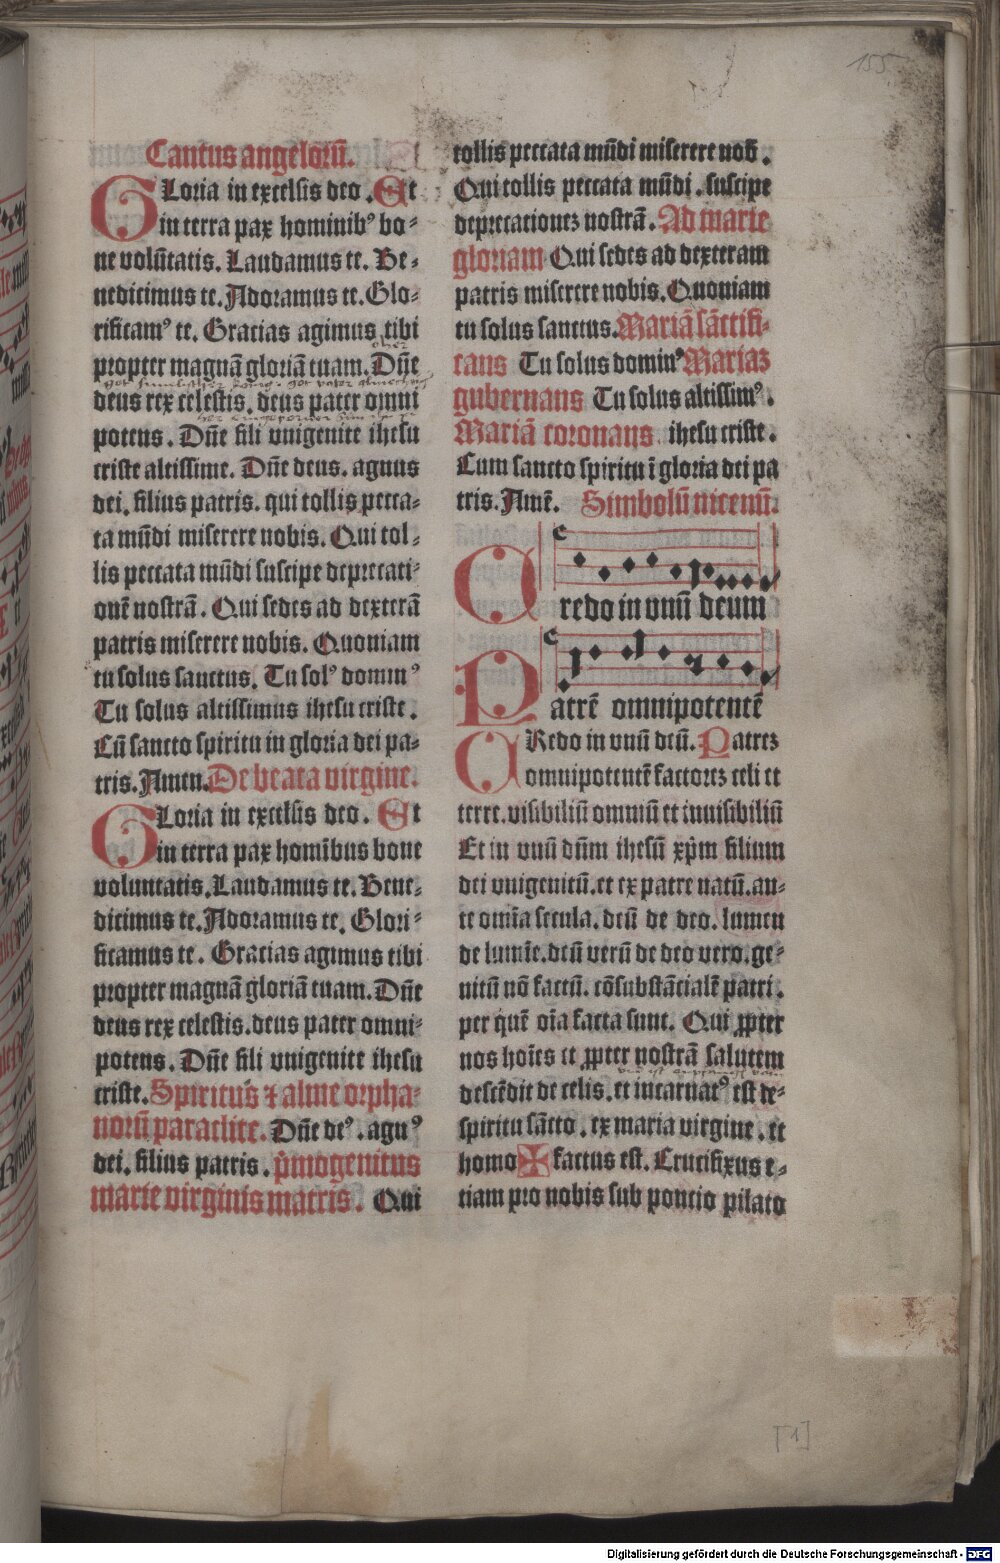 155
Cantus angeloꝝ.
GLoria in excelsis deo. Et
in terra pax hominibꝰ bo⸗
ne volūtatis. Laudamus te. Be⸗
nedicimus te. Adoramus te. Glo⸗
rificamꝰ te. Gracias agimus tibi
propter magnā gloriā tuam. Dn̄e
deus rex celestis. deus pater omni
potens. Dn̄e fili vnigenite ihesu
criste altissime. Dn̄e deus. agnus
dei. filius patris. qui tollis pecca⸗
ta mūdi miserere nobis. Qui tol⸗
lis peccata mūdi suscipe deprecati⸗
onē nostrā. Qui sedes ad dexterā
patris miserere nobis. Quoniam
tu solus sanctus. Tu solꝰ dominꝰ
Tu solus altissimus ihesu criste.
Cū sancto spiritu in gloria dei pa⸗
tris. Amen. De beata virgine.
GLoria in excelsis deo. Et
in terra pax homībus bone
voluntatis. Laudamus te. Bene⸗
dicimus te. Adoramus te. Glori⸗
ficamus te. Gracias agimus tibi
propter magnā gloriā tuam. Dn̄e
deus rex celestis. deus pater omni⸗
potens. Dn̄e fili vnigenite ihesu
criste. Spiritus ⁊ alme orpha⸗
norū paraclite. Dn̄e deꝰ. agnꝰ
dei. filius patris. p̄mogenitus
marie virginis matris. Qui
tollis peccata mūdi miserere nob̄.
Qui tollis peccata mūdi. suscipe
deprecationeꝫ nostrā. Ad marie
gloriam Qui sedes ad dexteram
patris miserere nobis. Quoniam
tu solus sanctus. Mariā sāctifi⸗
cans Tu solus dominꝰ Mariaꝫ
gubernans Tu solus altissimꝰ.
Mariā coronans ihesu criste.
Cum sancto spiritu ī gloria dei pa
tris. Amē. Simbolū nicenū.
Credo in vnū deum
Patrē omnipotentē
CRedo in vnū deū. Patreꝫ
omnipotentē factoreꝫ celi et
terre. visibiliū omniū et inuisibiliū
Et in vnū dn̄m ihesū xp̄m filium
dei vnigenitū. et ex patre natū. an⸗
te om̄ia secula. deū de deo. lumen
de lumīe. deū verū de deo vero. ge⸗
nitū nō factū. cōsubstācialē patri.
per quē oīa facta sunt. Qui ꝓpter
nos hoīes et ꝓpter nostrā salutem
descēdit de celis. et incarnatꝰ est de⸗
spiritu sācto. ex maria virgine. et
homo ✠ factus est. Crucifixus e⸗
tiam pro nobis sub pontio pilato
[1]
Digitalisierung gefördert durch die Deutsche Forschungsgemeinschaft - DFG